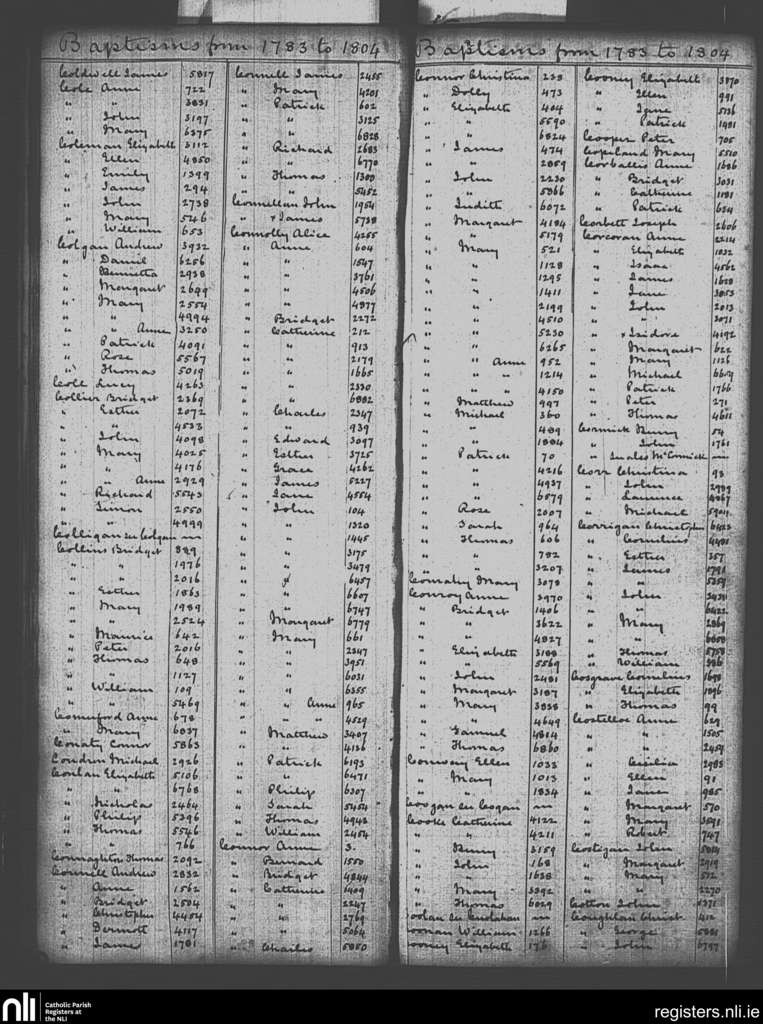 Baptisms from 1783 to 1804
Coldwell James 5817
Cole Anne 722
" " 3831
" John 3197
" Mary 6375
Coleman Elizabeth 3112
" Ellen 4850
" Emily 1399
" James 294
" John 2738
" Mary 546
" William 653
Colgan Andrew 3932
" Daniel 6256
" Henrietta 2938
" Margaret 2699
" Mary 2554
" " 4994
" " Anne 3250
" Patrick 4091
" Rose 5567
" Thomas 5019
Coll Lucy 4263
Collier Bridget 2369
" Esther 2072
" " 4533
" John 4098
" Mary 4025
" " 4176
" " Anne 2929
" Richard 5543
" Simon 2550
" " 4999
Colligan see Colgan
Collins Bridget 389
" " 1976
" " 2016
" Esther 1863
" Mary 1989
" " 2524
" Maurice 642
" Peter 2016
" Thomas 648
" " 1127
" William 109
" " 5469
Comerford Anne 678
" Mary 6037
Conaty Connor 5863
Condron Michael 2926
Conlan Elizabeth 5106
" " 6768
" Nicholas 2464
" Philip 5396
" Thomas 5546
" " 766
Connaghton Thomas 2092
Connell Andrew 2832
" Anne 1562
" Bridget 2504
" Christopher 4454
" Dermott 4117
" James 1781
Connell James 2455
" Mary 4201
" Patrick 602
" " 3125
" " 6828
" Richard 2683
" " 6770
" Thomas 1300
" " 5452
Connellan John 1954
" x James 5738
Connolly Alice 4255
" Anne 604
" " 1547
" " 3761
" " 4506
" " 4877
" Bridget 2272
" Catherine 212
" " 913
" " 2179
" " 1665
" " 2330
" " 6882
" Charles 2347
" " 939
" Edward 3097
" Esther 3725
" Grace 4262
" James 5227
" Jane 4554
" John 104
" " 1320
" " 1445
" " 3175
" " 3479
" " 6457
" " 6607
" " 6747
" Margaret 6779
" Mary 661
" " 2347
" " 3951
" " 6031
" " 6355
" " Anne 965
" " " 4529
" Matthew 3407
" " 4126
" Patrick 6193
" " 6471
" Philip 6307
" Sarah 5454
" Thomas 4942
" William 2454
Connor Anne 3.
" Bernard 1550
" Bridget 4844
" Catherine 1409
" " 2247
" " 2769
" " 5064
" Charles 5850
Baptisms from 1783 to 1804
Connor Christina 238
" Dolly 473
" Elizabeth 404
" " 5590
" " 6824
" James 474
" " 2859
" John 2230
" " 5366
" Judith 6072
" Margaret 4184
" " 5179
" Mary 521
" " 1128
" " 1295
" " 1411
" " 2199
" " 4510
" " 5230
" " 6265
" " Anne 952
" " " 1214
" " " 4150
" Matthew 997
" Michael 360
" " 489
" " 1884
" Patrick 70
" " 4216
" " 4937
" " 6579
" Rose 2007
" Sarah 964
" Thomas 606
" " 782
" " 3207
Conralry Mary 3078
Conroy Anne 3970
" Bridget 1406
" " 3622
" " 4827
" Elizabeth 3188
" " 5569
" John 2481
" Margaret 3187
" Mary 3838
" " 4649
" Samuel 4814
" Thomas 6860
Conway Ellen 1033
" Mary 1013
" " 1834
Coogan see Cogan
Cooke Catherine 4122
" " 4211
" Henry 3159
" John 168
" " 1638
" Mary 3392
" Thomas 6029
oolan see Coolahan
oonan William 1266
ooney Elizabeth 176
Cooney Elizabeth 3870
" Ellen 991
" Jane 5136
" Patrick 1481
Cooper Peter 705
Copeland Mary 5510
Corballis Anne 1686
" Bridget 3031
" Catherine 1181
" Patrick 624
Corbett Joseph 2606
Corcoran Anne 2214
" Elizabeth 1832
" Isaac 4562
" James 1628
" Jane 3853
" John 2013
" " 3071
" x Isidore 4192
" Margaret 622
" Mary 1126
" Michael 6659
" Patrick 1766
" Peter 271
" Thomas 4611
Cormick Henry 54
" John 1761
" See also McCormick
Corr Christina 93
" John 2989
" Laurence 4867
" Michael
Corrigan Christopher 6423
" Cornelius 4481
" Esther 357
" James 1791
" " 5359
" John 3430
" " 6422
" Mary 2869
" " 6658
" Thomas 5758
" William 386
Cosgrave Cornelius 1698
" Elizabeth 1896
" Thomas 99
Costelloe Anne 629
" " 1505
" " 2459
" Cecilia 2983
" Ellen 91
" Jane 985
" Margaret 570
" Mary 3591
" Robert 747
Costigan John 5814
" Margaret 2919
" Mary 572
" " 2270
Cotton John 5371
Coughlan Christ. 412
" George 5881
" John 6797
nli
Catholic Parish
Registers at
the NLI
registers.nli.ie